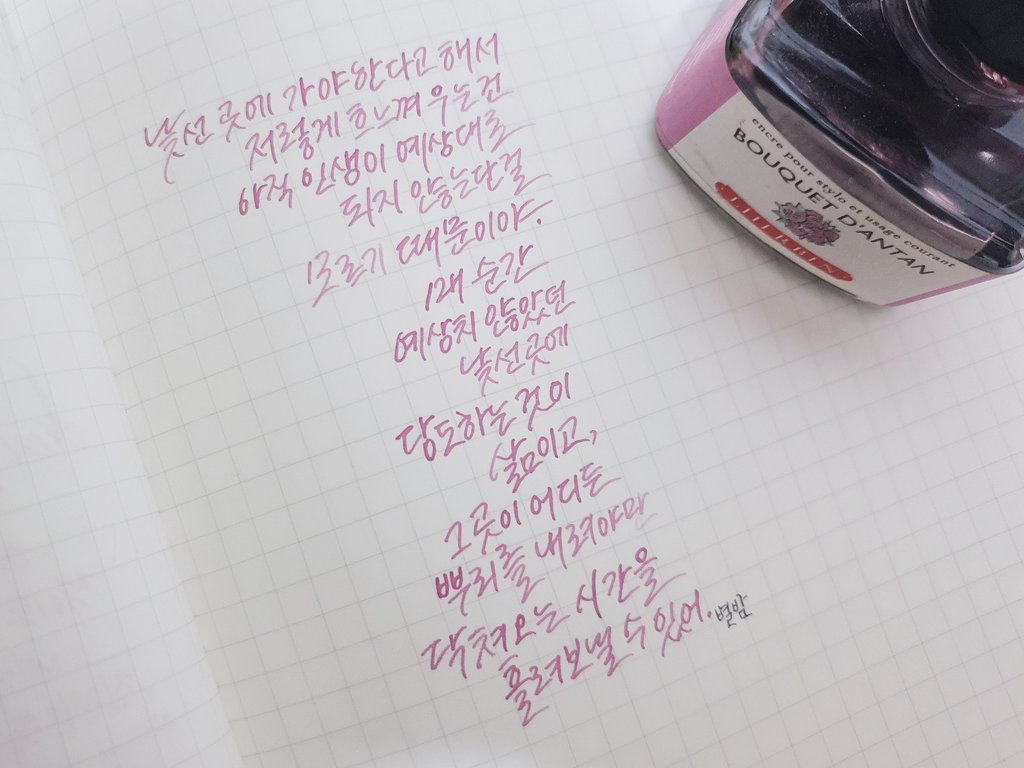 낯선 곳에 가야한다고 해서
저렇게 흐느껴 우는건
아직 인생이 예상대로
되지 않는단걸
모르기 때문이야.
매 순간
예상치 않았던
낯선곳에
당도하는 것이
삶이고,
그 곳이 어디든
뿌리를 내려야만
닥쳐오는 시간을
흘려보낼 수 있어.
별밤
encre pour stylo et usage courant
BOUQUET D'ANTAN
J.HERBIN